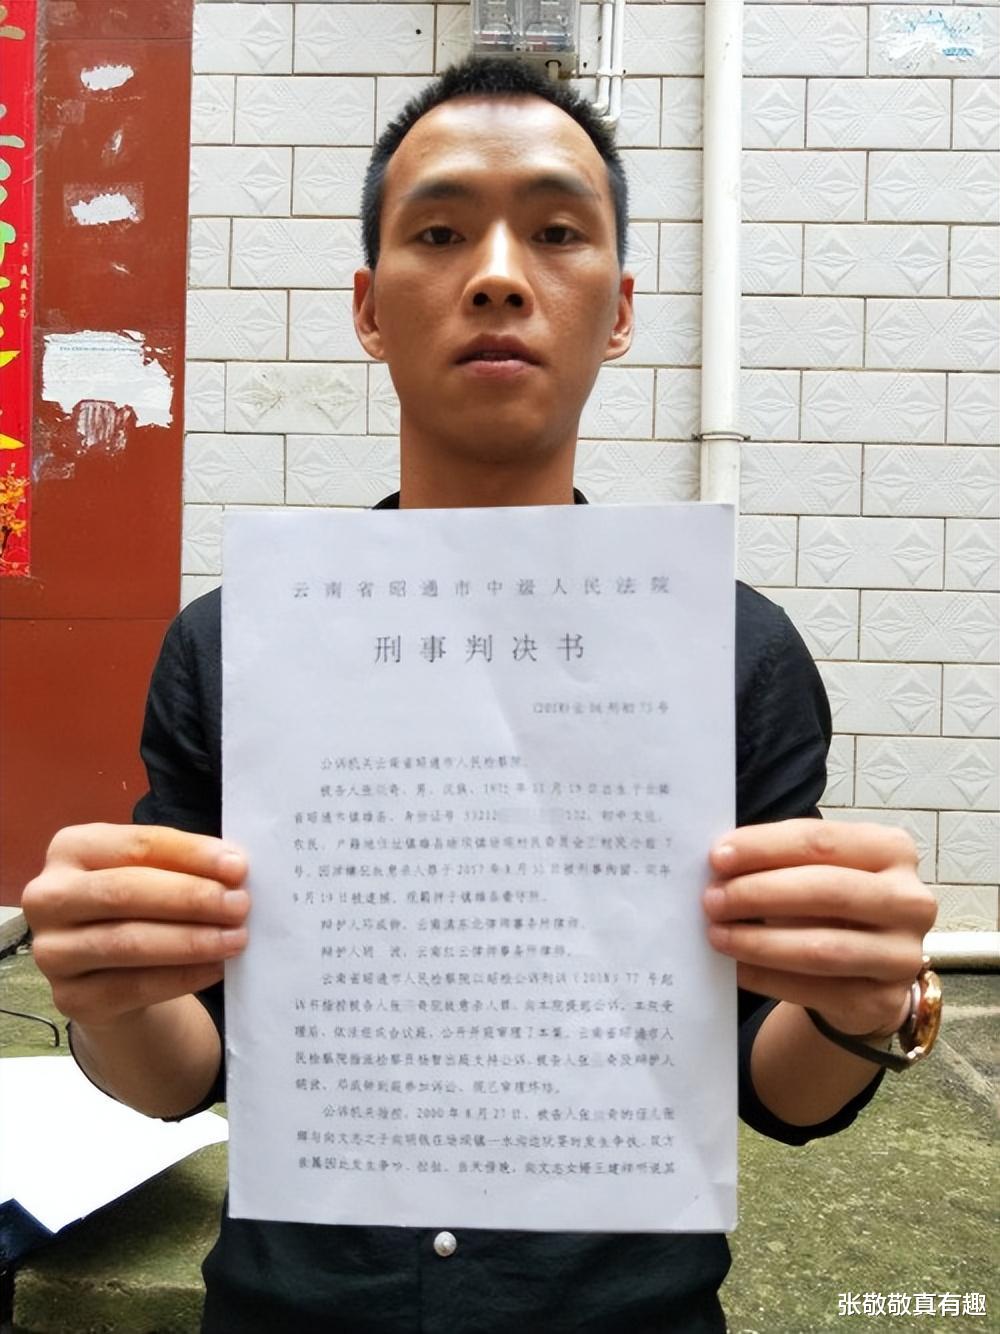 云南省昭通市中级人民法院
刑事判决书
(2018)云06刑初75号
公诉机关云南省昭通市人民检察院。
被告人张 奇，男，汉族，1972年11月19日出生于云南
省昭通市镇雄县，身份证号53212 132，初中文化，
农民，户籍地住址镇雄县塘坝镇塘坝村民委员会三村民小组7
号。因涉嫌犯故意杀人罪于2017年8月31日被刑事拘留，同年
9月19日被逮捕。现羁押于镇雄县看守所。
辩护人邓成钟，云南滇东北律师事务所律师。
辩护人胡 波，云南红云律师事务所律师。
云南省昭通市人民检察院以昭检公诉刑诉（2018）77号起
诉书指控被告人张 奇犯故意杀人罪，向本院提起公诉。本院受
理后，依法组成合议庭，公开开庭审理了本案。云南省昭通市人
民检察院指派检察员杨智出庭支持公诉，被告人张 奇及辩护人
胡波、邓成钟到庭参加诉讼。现已审理终结。
公诉机关指控，2000年8月27日，被告人张 奇的侄儿张
与向文志之子向明钱在塘坝镇一水沟边玩耍时发生争执，双方
亲属因此发生争吵、拉扯。当天傍晚，向文志女婿王建祥听说其
1
张敬敬真有趣